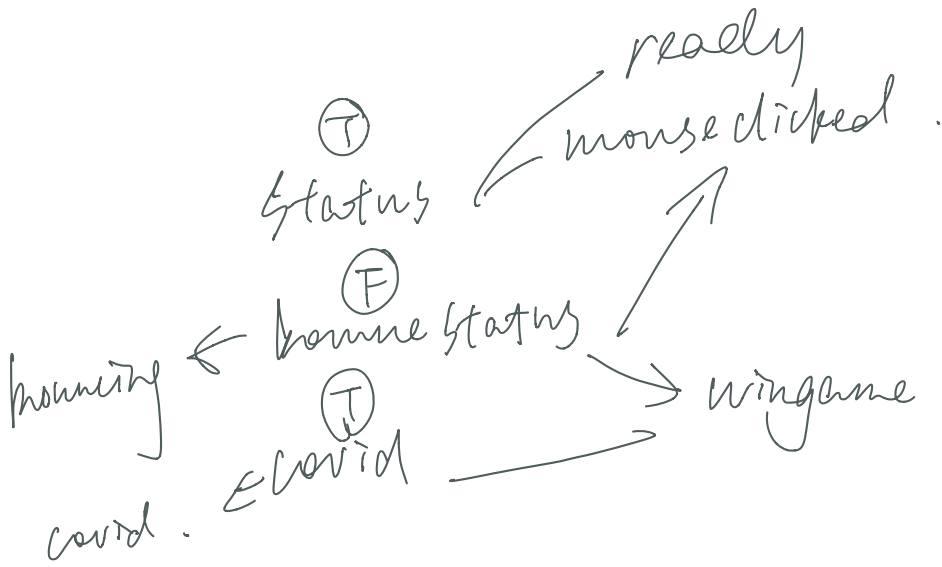 ready
mouseclicked.
T
status
F
status
bouncing
wingame
T
covid
covid.